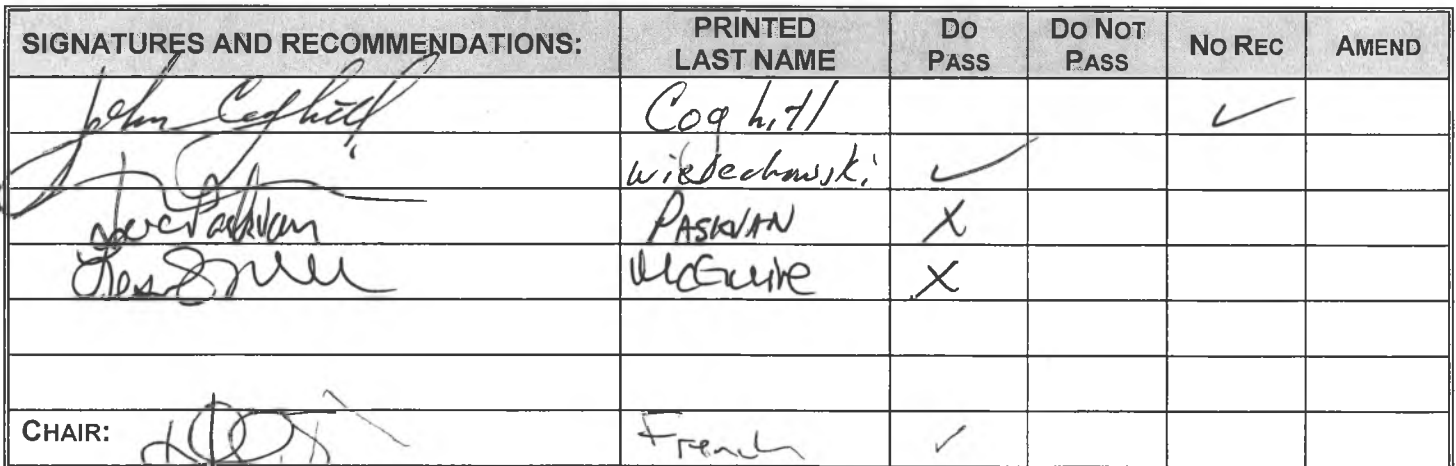 SIGNATURES AND RECOMMENDATIONS: PRINTED LAST NAME DO PASS DO NOT PASS NO REC AMEND
John Coghill Coghill ✓
Wielechowski ✓
Joe Paskvan PASKVAN X
McGuire X
CHAIR: French ✓